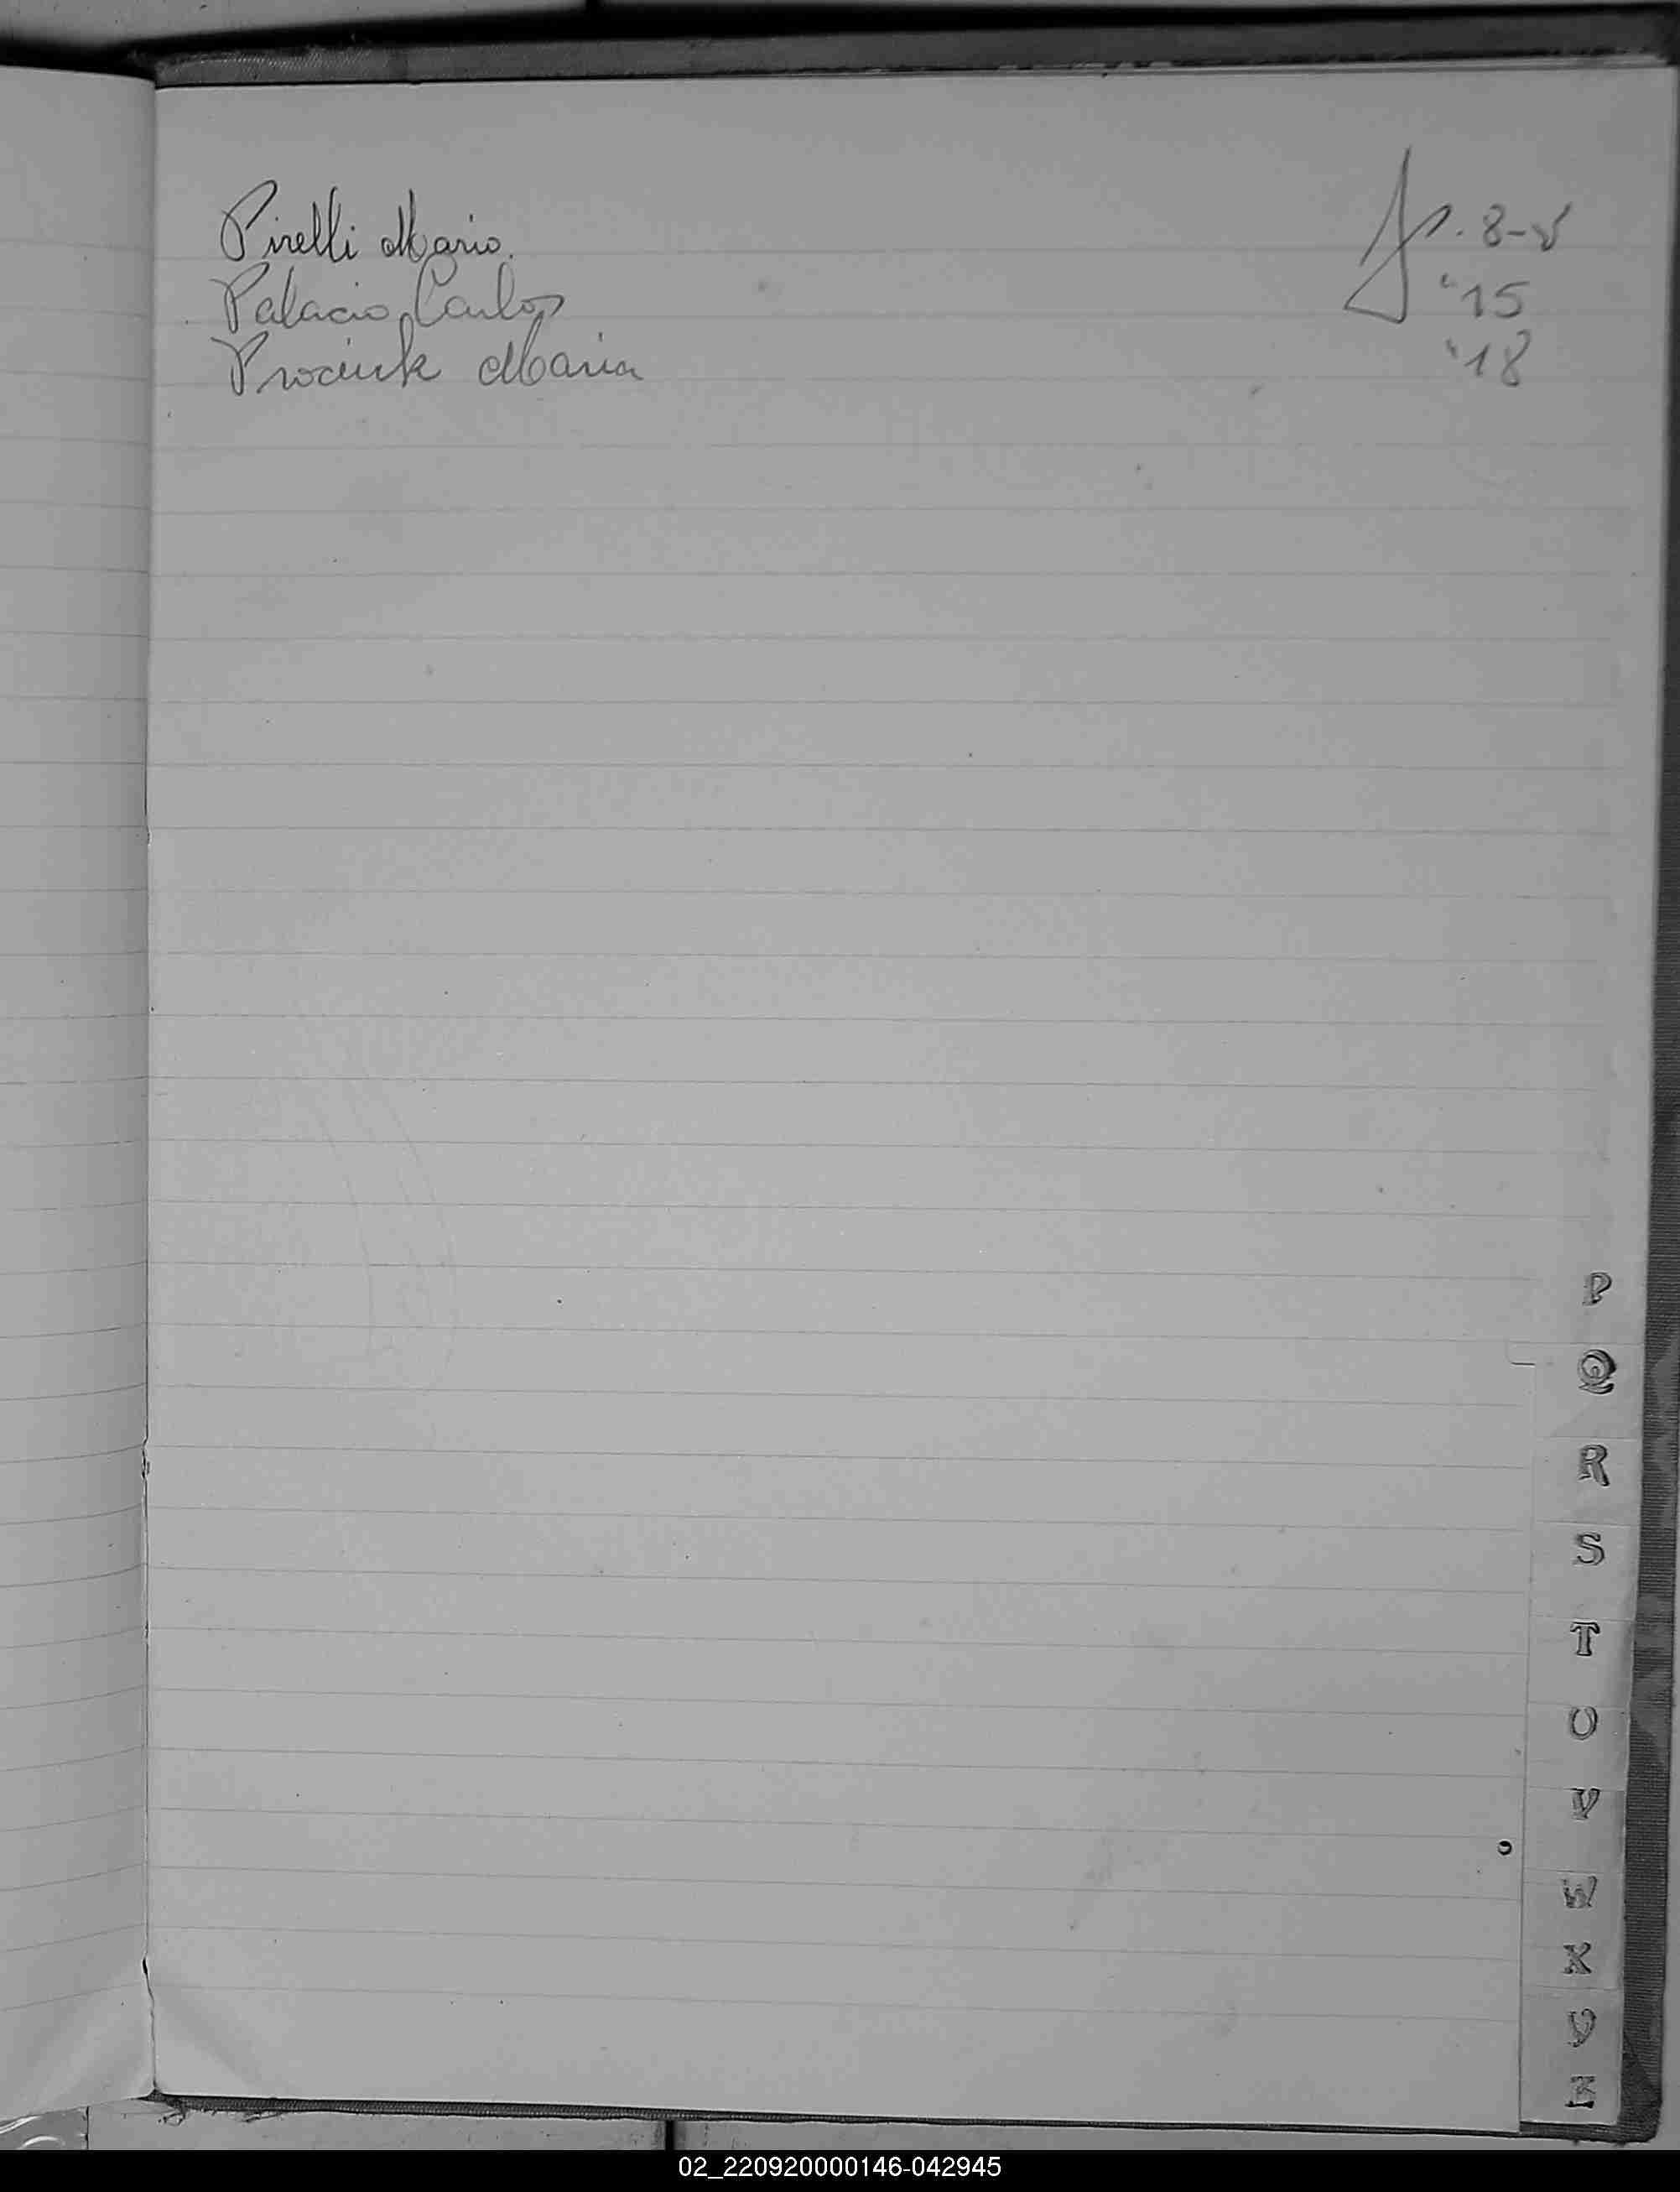 Pirelli Mario. fs. 8-v
Palacio Carlos "15
Prociuk Maria "18
P
Q
R
S
T
U
V
W
X
Y
Z
02_220920000146-042945